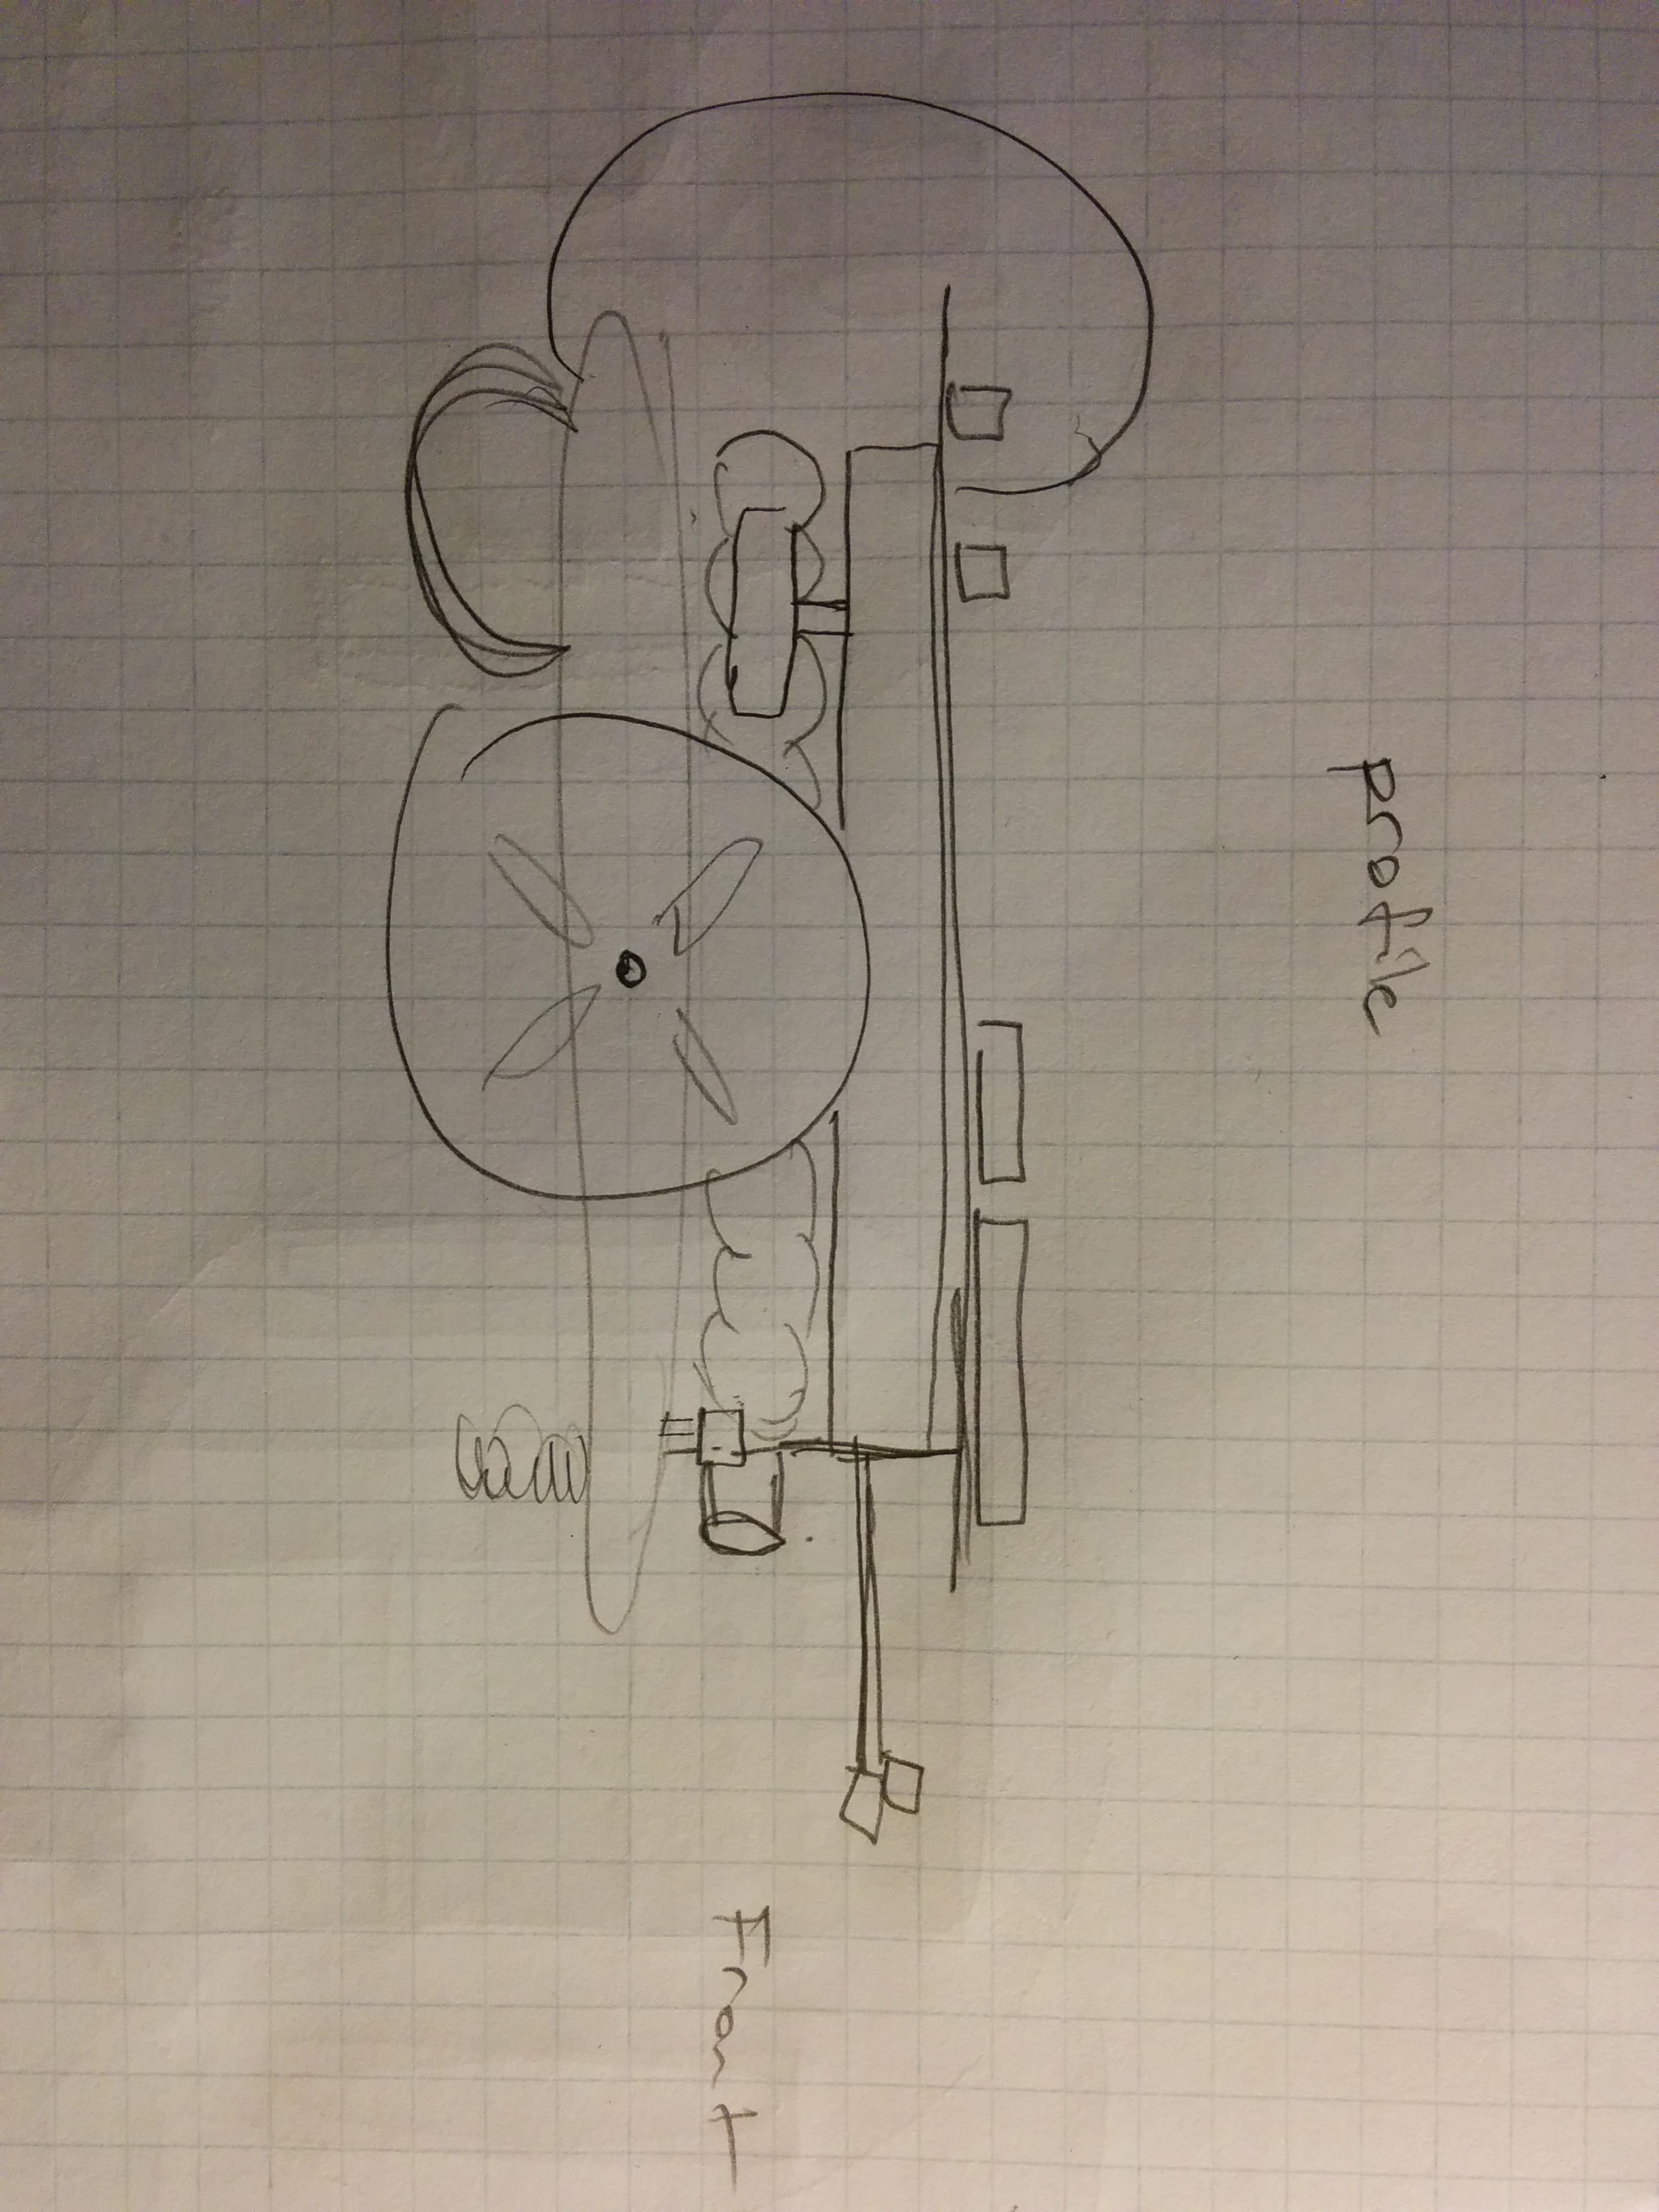 profile
Front